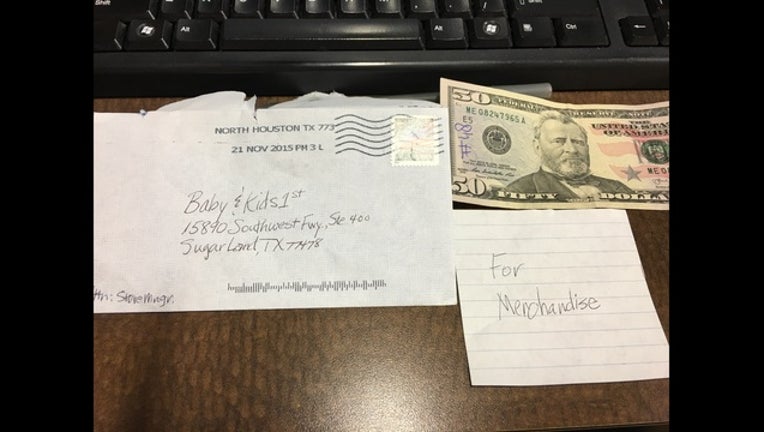 Shift
Ctrl
Alt
Alt
Ctrl
NORTH HOUSTON TX 773
21 NOV 2015 PM 3 L
Baby & Kids 1st
15890 Southwest Fwy, Ste 400
Sugar Land, TX 77478
ttn: Store Mngr.
50
FEDERAL RESERVE NOTE
ME 08247365 A
E5
#48
THE
UNITED STATES
OF AMERICA
ME 0
50
FIFTY DOLLA
For
Merchandise